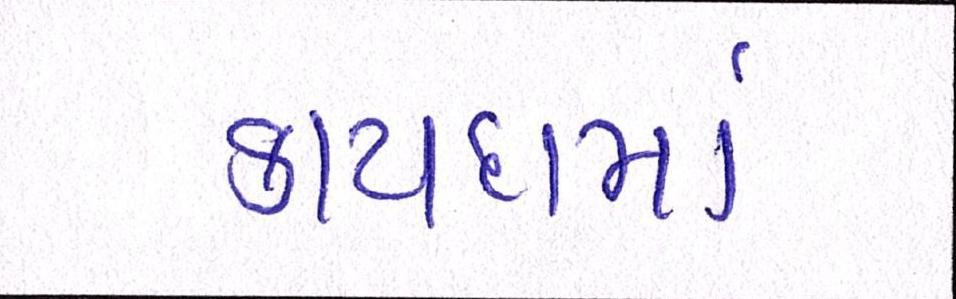 કાયદામાં